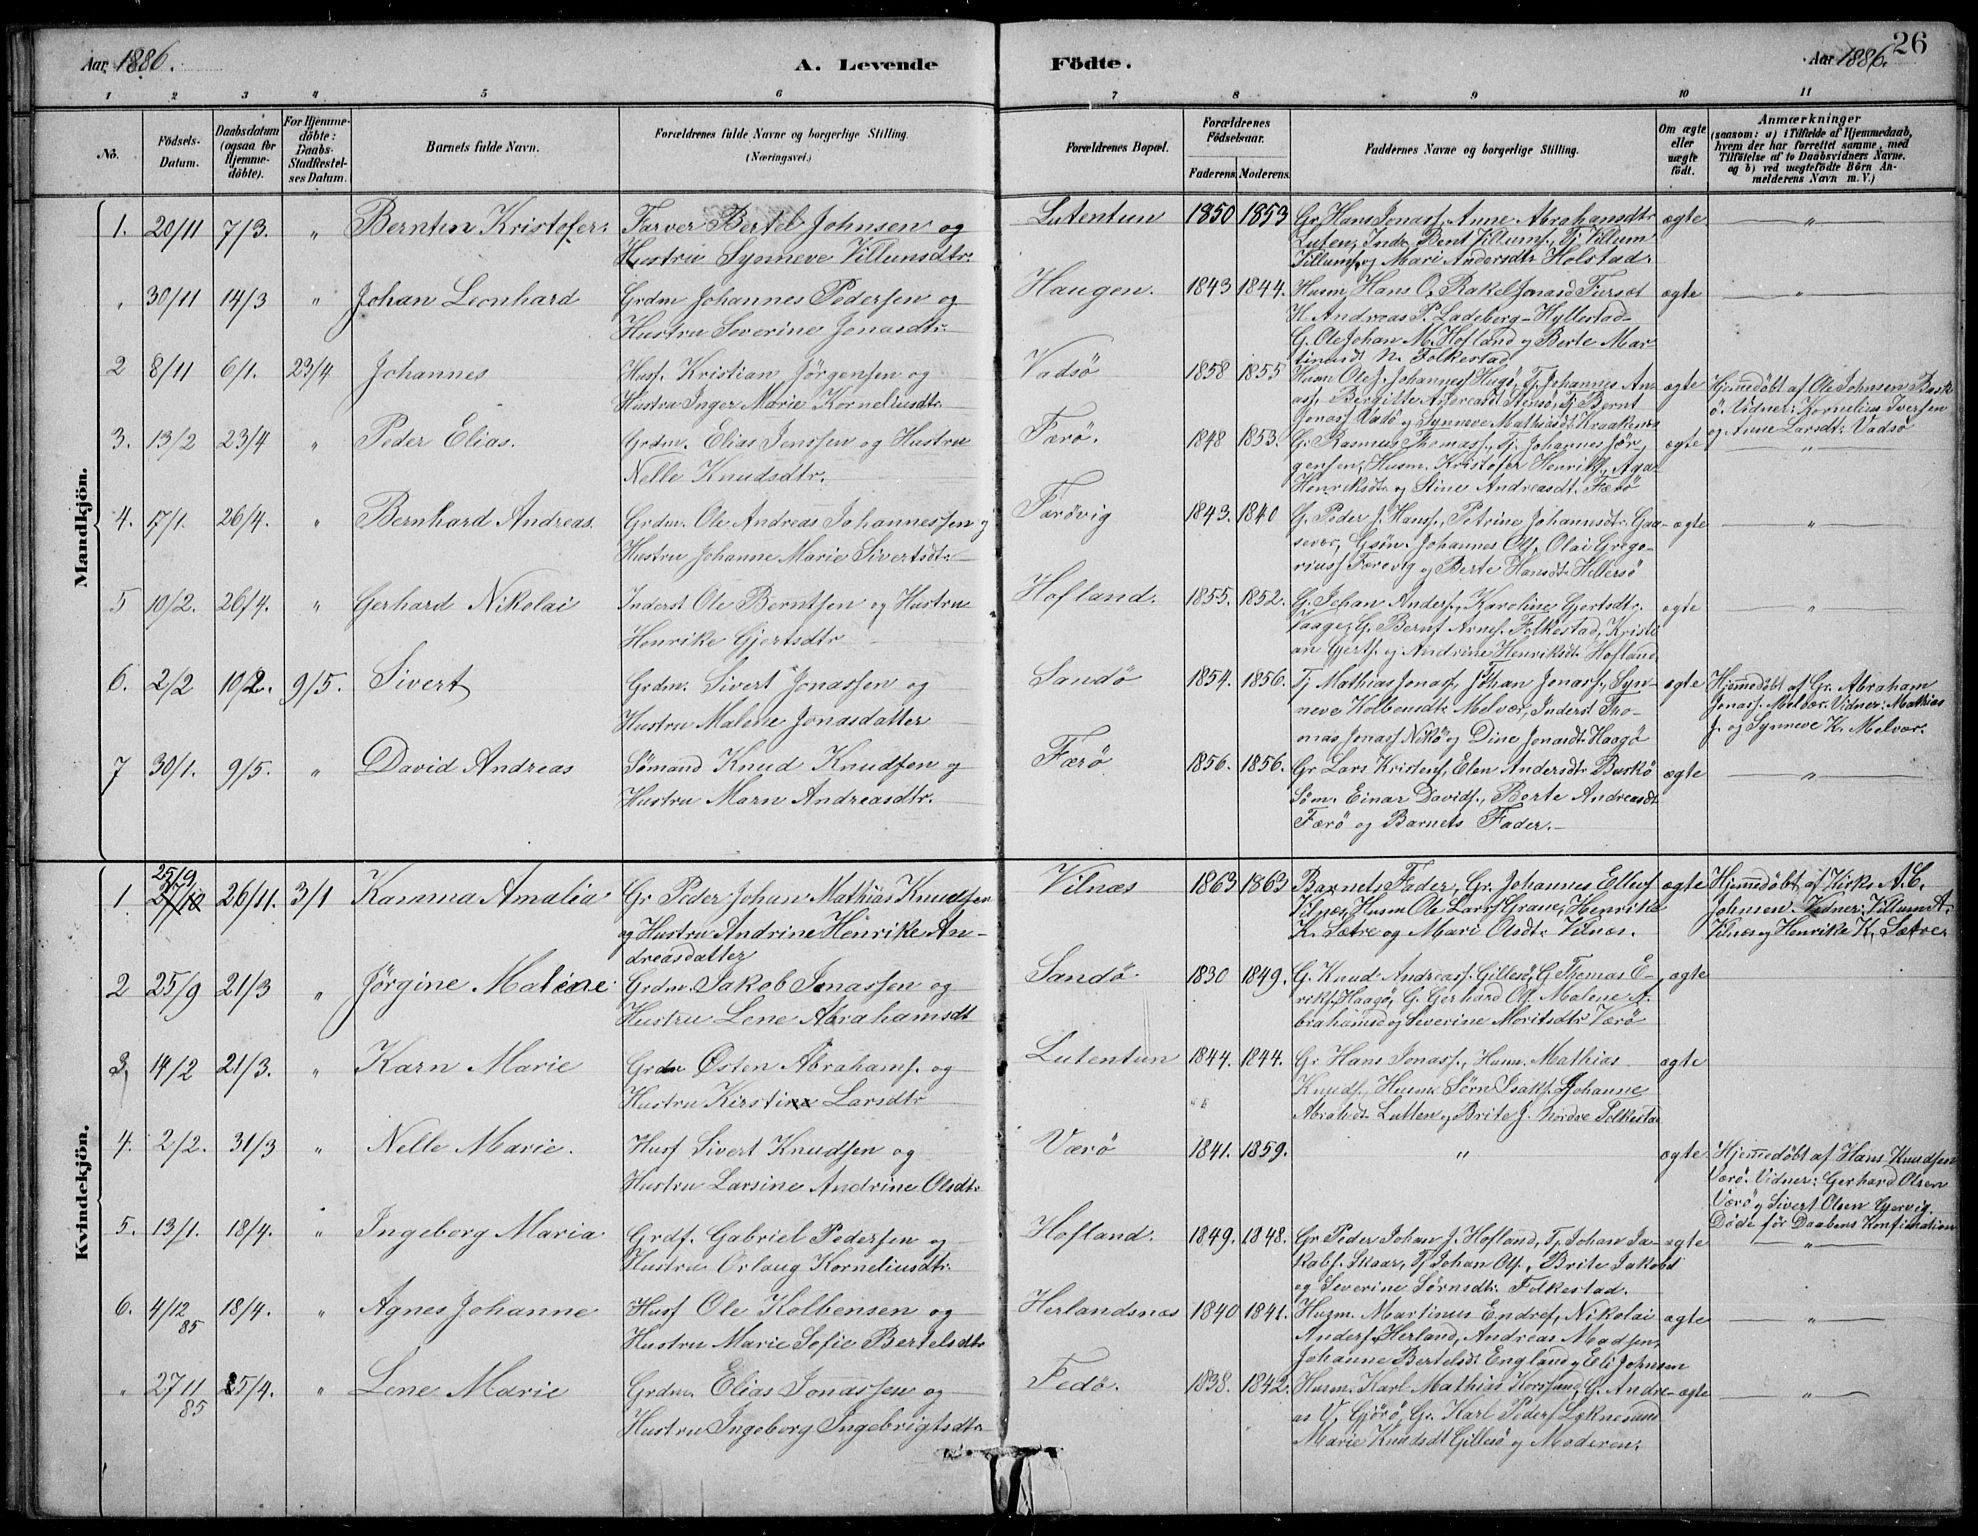 Aar 1886.
A. Levende
Födte.
Aar 1886.
26
1 2 3 4 5 6 7 8 9 10 11
No.
Födsels-Datum.
Daabsdatum (ogsaa for Hjemme-döbte).
For Hjemme-döbte: Daabs-Stadfæstel-ses Datum.
Barnets fulde Navn.
Forældrenes fulde Navne og borgerlige Stilling. (Næringsvei.)
Forældrenes Bopæl.
Forældrenes Födselsaar.
Faderens. Moderens.
Faddernes Navne og borgerlige Stilling.
Om ægte eller uægte födt.
Anmærkninger
(saasom: a) i Tilfælde af Hjemmedaab,
hvem der har forrettet samme, med
Tilföielse af to Daabsvidners Navne.
og b) ved uægtefödte Börn An-
melderens Navn m. V.)
Mandkjön.
1. 20/11 7/3. " Berntin Kristofer. Farver Bertel Johnsen og Lutentun 1850 1853 Gr. Hans Jonasf. Anne Abrahamsdtr ægte "
Hustru Synneve Villumsdtr. Luten, Inds. Bent Villumf., Tj Villum
Villumf. og Mari Andersdtr Holstad.
" 30/11 14/3 " Johan Leonhard Grdm Johannes Pedersen og Haugen. 1843 1844. Husm Hans O, Rakel Jonasd Tiersæt ægte "
Hustru Severine Jonasdtr. K. Andreas P. Ladeberg - Hyllestad
G. Ole Johan M. Hofland og Berte Mar-
tinusdt N. Folkestad
2 8/11 6/1. 23/4 Johannes Husf. Kristian Jörgensen og Vadsö 1858 1855 Husm Ole J. Johannes Hugö, Tj. Johannes An- ægte Hjemmedöbt af Ole Johnsen Bask
Hustru Inger Marie Korneliusdtr. ö. Vidner: Kornelius Iversen
Jonasf Vadsö og Synneve Mathiasdt Kraakenes og Anne Larsdt. Vadsö
3. 13/2 23/4 " Peder Elias. Grdm. Elias Jensen og Hustru Færö. 1848 1853. G. Rasmus Thomasf., Tj. Johannes Jör- ægte "
Nelle Knudsdtr. gensen, Husm. Kristofer Henrikf., Aga
Henriksdt og Stine Andreasdt. Færö
4. 17/1. 26/4. " Bernhard Andreas. Grdm. Ole Andreas Johannessen og Færövig 1843. 1840 G. Peder J. Hansf., Petrine Johannsdt. Gaa- ægte "
Hustru Johanne Marie Sivertsdtr. sevær, Gsön. Johannes Olf., Olai Grego-
riusf Færevig og Berte Hansdt Hillersö
5 10/2. 26/4. " Gerhard Nikolai Inderst Ole Berntsen og Hustru Hofland. 1855. 1852. G. Johan Andersf., Karoline Gjertsdtr. ægte "
Henrike Gjertsdtr Vaage, G. Bernt Arnef. Folkestad, Kristi
an Gjertf. og Andrine Henriksdt. Hofland
6. 2/2 10/2. 9/5. Sivert Grdm. Sivert Jonassen og Sandö 1854. 1856. Tj Mathias Jonasf., Johan Jonasf., Syn- ægte Hjemmedöbt af Gr. Abraham
Hustru Malene Jonasdatter neve Kolbensdt. Melvær, Inderst Tho- Jonasf. Melvær. Vidner: Mathias
mas Jonasf Nekö og Dine Jonasdt. Haagö J. og Synneve K. Melvær.
7 30/1. 9/5. " David Andreas Sömand Knud Knudsen og Færö 1856. 1856. Gr Lars Kristenf., Elen Andersdtr Buskö ægte "
Hustru Marn Andreasdtr. Söm. Einar Davidf., Berte Andreasdt
Færö og Barnets Fader.
Kvindekjön.
25/9
1 27/10 26/11. 3/1 Kamma Amalia Gr Peder Johan Mathias Knudsen Vilnæs 1863 1863 Barnets Fader, Gr. Johannes Ellef ægte Hjemmedöbt af Kirks. A. C.
og Hustru Andrine Henrike An- Vilnæs, Husm Ole Larsf Grane, Henrike Johnsen. Vidner: Villum A.
dreasdatter K. Sætre og Mari Olsdt. Vilnæs. Vilnæs og Henrike K. Sætre.
2 25/9 21/3 " Jörgine Malene Grdm. Jakob Jonassen og Sandö. 1830 1849. G. Knud Andreasf. Gillesö, G Thomas E- ægte
Hustru Lene Abrahamsdt rikf. Haagö, G. Gerhard Olf. Malene A.
brahamsd og Severine Moritsdtr. Værö
3. 14/2 21/3. " Karn Marie Grdm Østen Abrahamf. og Lutentun 1844. 1844. Gr Hans Jonasf., Husm. Mathias ægte
Hustru Kirstine Larsdtr Knudf., Husm. Sörn Isakf. Johanne
Abrahdt. Lutten og Brite J. Nordre Folkestad
4. 2/2. 31/3 " Nelle Marie. Husf Sivert Knudsen og Værö 1841. 1859. " ægte Hjemmedöbt af Hans Knudsen
Hustru Larsine Andrine Olsdtr Værö. Vidner: Gerhard Olsen
Værö og Sivert Olsen Gjervig.
Döde för Daabens Konfirmation
5. 13/1. 18/4. " Ingeborg Maria Grdf. Gabriel Pedersen og Hofland. 1849. 1848. Gr Peder Johan J. Hofland, Tj Johan Ja- ægte "
Hustru Orlaug Korneliusdtr. kobf. Skaar, Tj Johan Olf., Brite Jakobd
og Severine Sörnsdtr. Folkestad.
6. 4/12 85 18/4. " Agnes Johanne Husf Ole Kolbensen og Herlandsnæs 1840 1841. Husm. Martinus Endref, Nikolai ægte "
Hustru Marie Sofie Bertelsdtr Andersf Herland, Andreas Madsen,
Johanne Bertelsdt England og Eli Johnsen
" 27/11 85 25/4. " Lene Marie Grdm. Elias Jonassen og Fedö. 1838. 1842. Husm. Karl Mathias Korssund, G. Andre- ægte "
Hustru Ingeborg Ingebrigtsdtr as V. Gjörö, Gr. Karl Pederf Lyknesund
Marie Knudsdt Gillesö og Moderen.